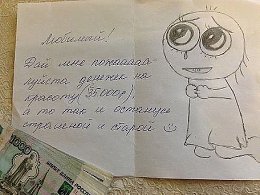 Любимый!
Дай мне пожалуй-
хуйста денежек на
красоту (35000р),
а то так и останусь
страшной и старой ☺
1000